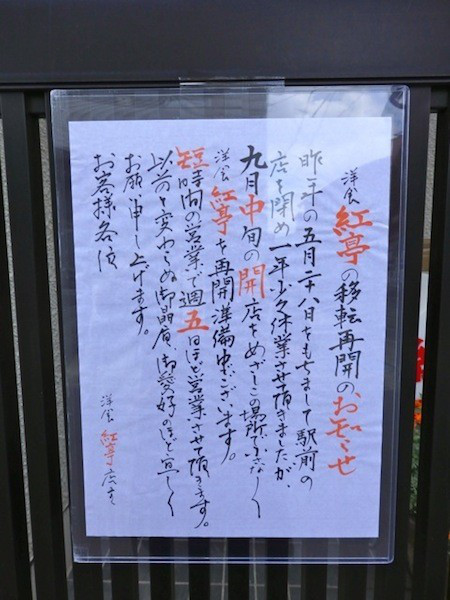 洋食 紅亭の移転再開のお知らせ
昨年の五月二十八日をもちまして駅前の
店を閉め一年少々休業させて頂きましたが、
九月中旬の開店をめざしこの場所で
洋食 紅亭を再開準備中でございます。
短時間の営業で週五日ほど営業させて頂きます。
以前と変わらぬ御贔屓、御愛好のほど宜しく
お願い申し上げます。
お客様各位
洋食 紅亭店主